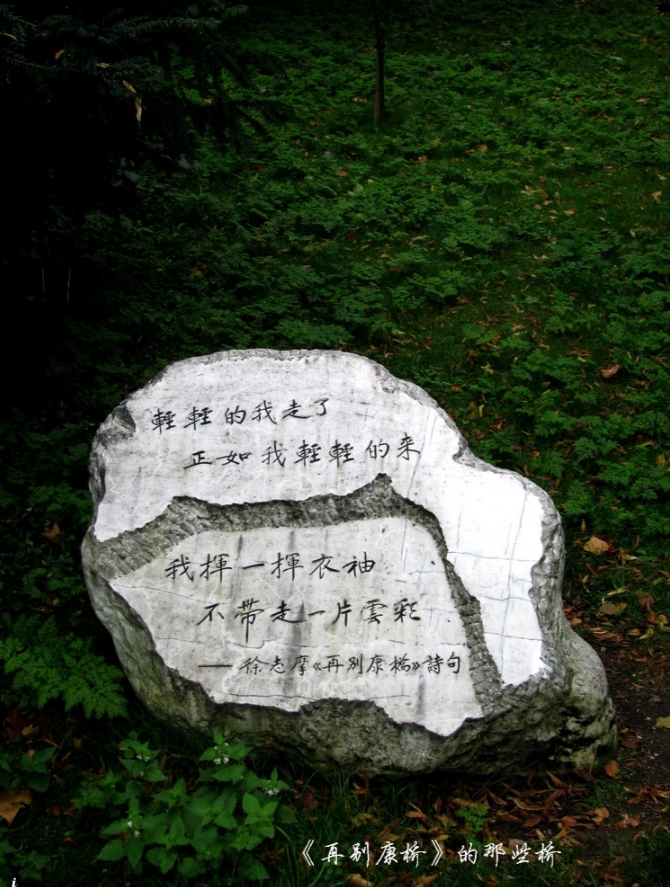 輕輕的我走了
正如我輕輕的来
我揮一揮衣袖
不帶走一片雲彩
——徐志摩《再别康橋》詩句
《再别康桥》的那些桥